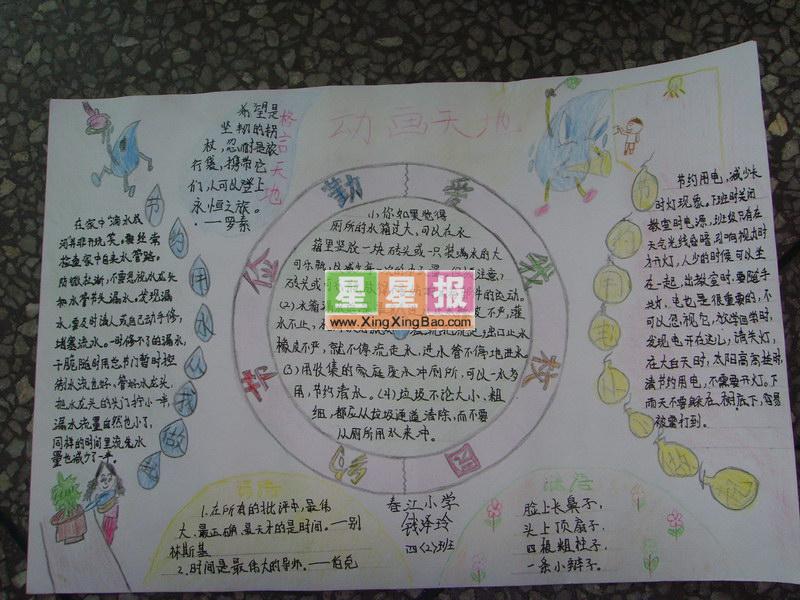 动画天地
格言天地
希望是
坚韧的拐
杖,忍耐是旅
行袋,携带它
们,人可以登上
永恒之旅。
——罗素
节约用水从我做
在家中滴水成
河并非开玩笑。要经常
检查家中自来水管路。
防微杜渐,不要忽视水龙头
和水管节头漏水。发现漏
水,要及时请人或自己动手修,
堵塞流水。一时修不了的漏水,
干脆随时用总节门暂时控
把水龙头的头门拧小一半,
漏水流量自然也小了,
同样的时间里流失水
量也减少了一半。
勤俭节
小,你如果觉得
厕所的水箱过大,可以在水
箱里竖放一块砖头或一只装满水的大
注意,
砖头或
件的运动。
(2)水箱
水不止,
星星报
www.XingXingBao.com
橡皮不严,就不停流走水,进水管不停地进水
(3)用收集的家庭废水冲厕所,可以一水多
用,节约清水。(4)垃圾不论大小、粗
细,都应从垃圾通道清除,而不要
从厕所用水来冲。
节约用电,减少长
时灯现象。下班时关闭
教室时电源,班级只有在
天色光线昏暗影响视力时
才开灯,人少的时候可以坐
在一起,出教室时,要随手
关灯,电也是很重要的,不
可以忽视它,放学回学时,
发现电开在这儿,请关灯,
在大白天时,太阳高高挂时,
请节约用电,不需要开灯。下
雨天不要躲在树底下,容易
被雷打到。
1.在所有的批评中,最伟
大、最正确、最天才的是时间。——别
林斯基
2.时间是最伟大的导师。——伯克
春江小学
钱泽玲
四(2)班
谜语
脸上长鼻子,
头上顶扇子,
四根粗柱子,
一条小辫子。